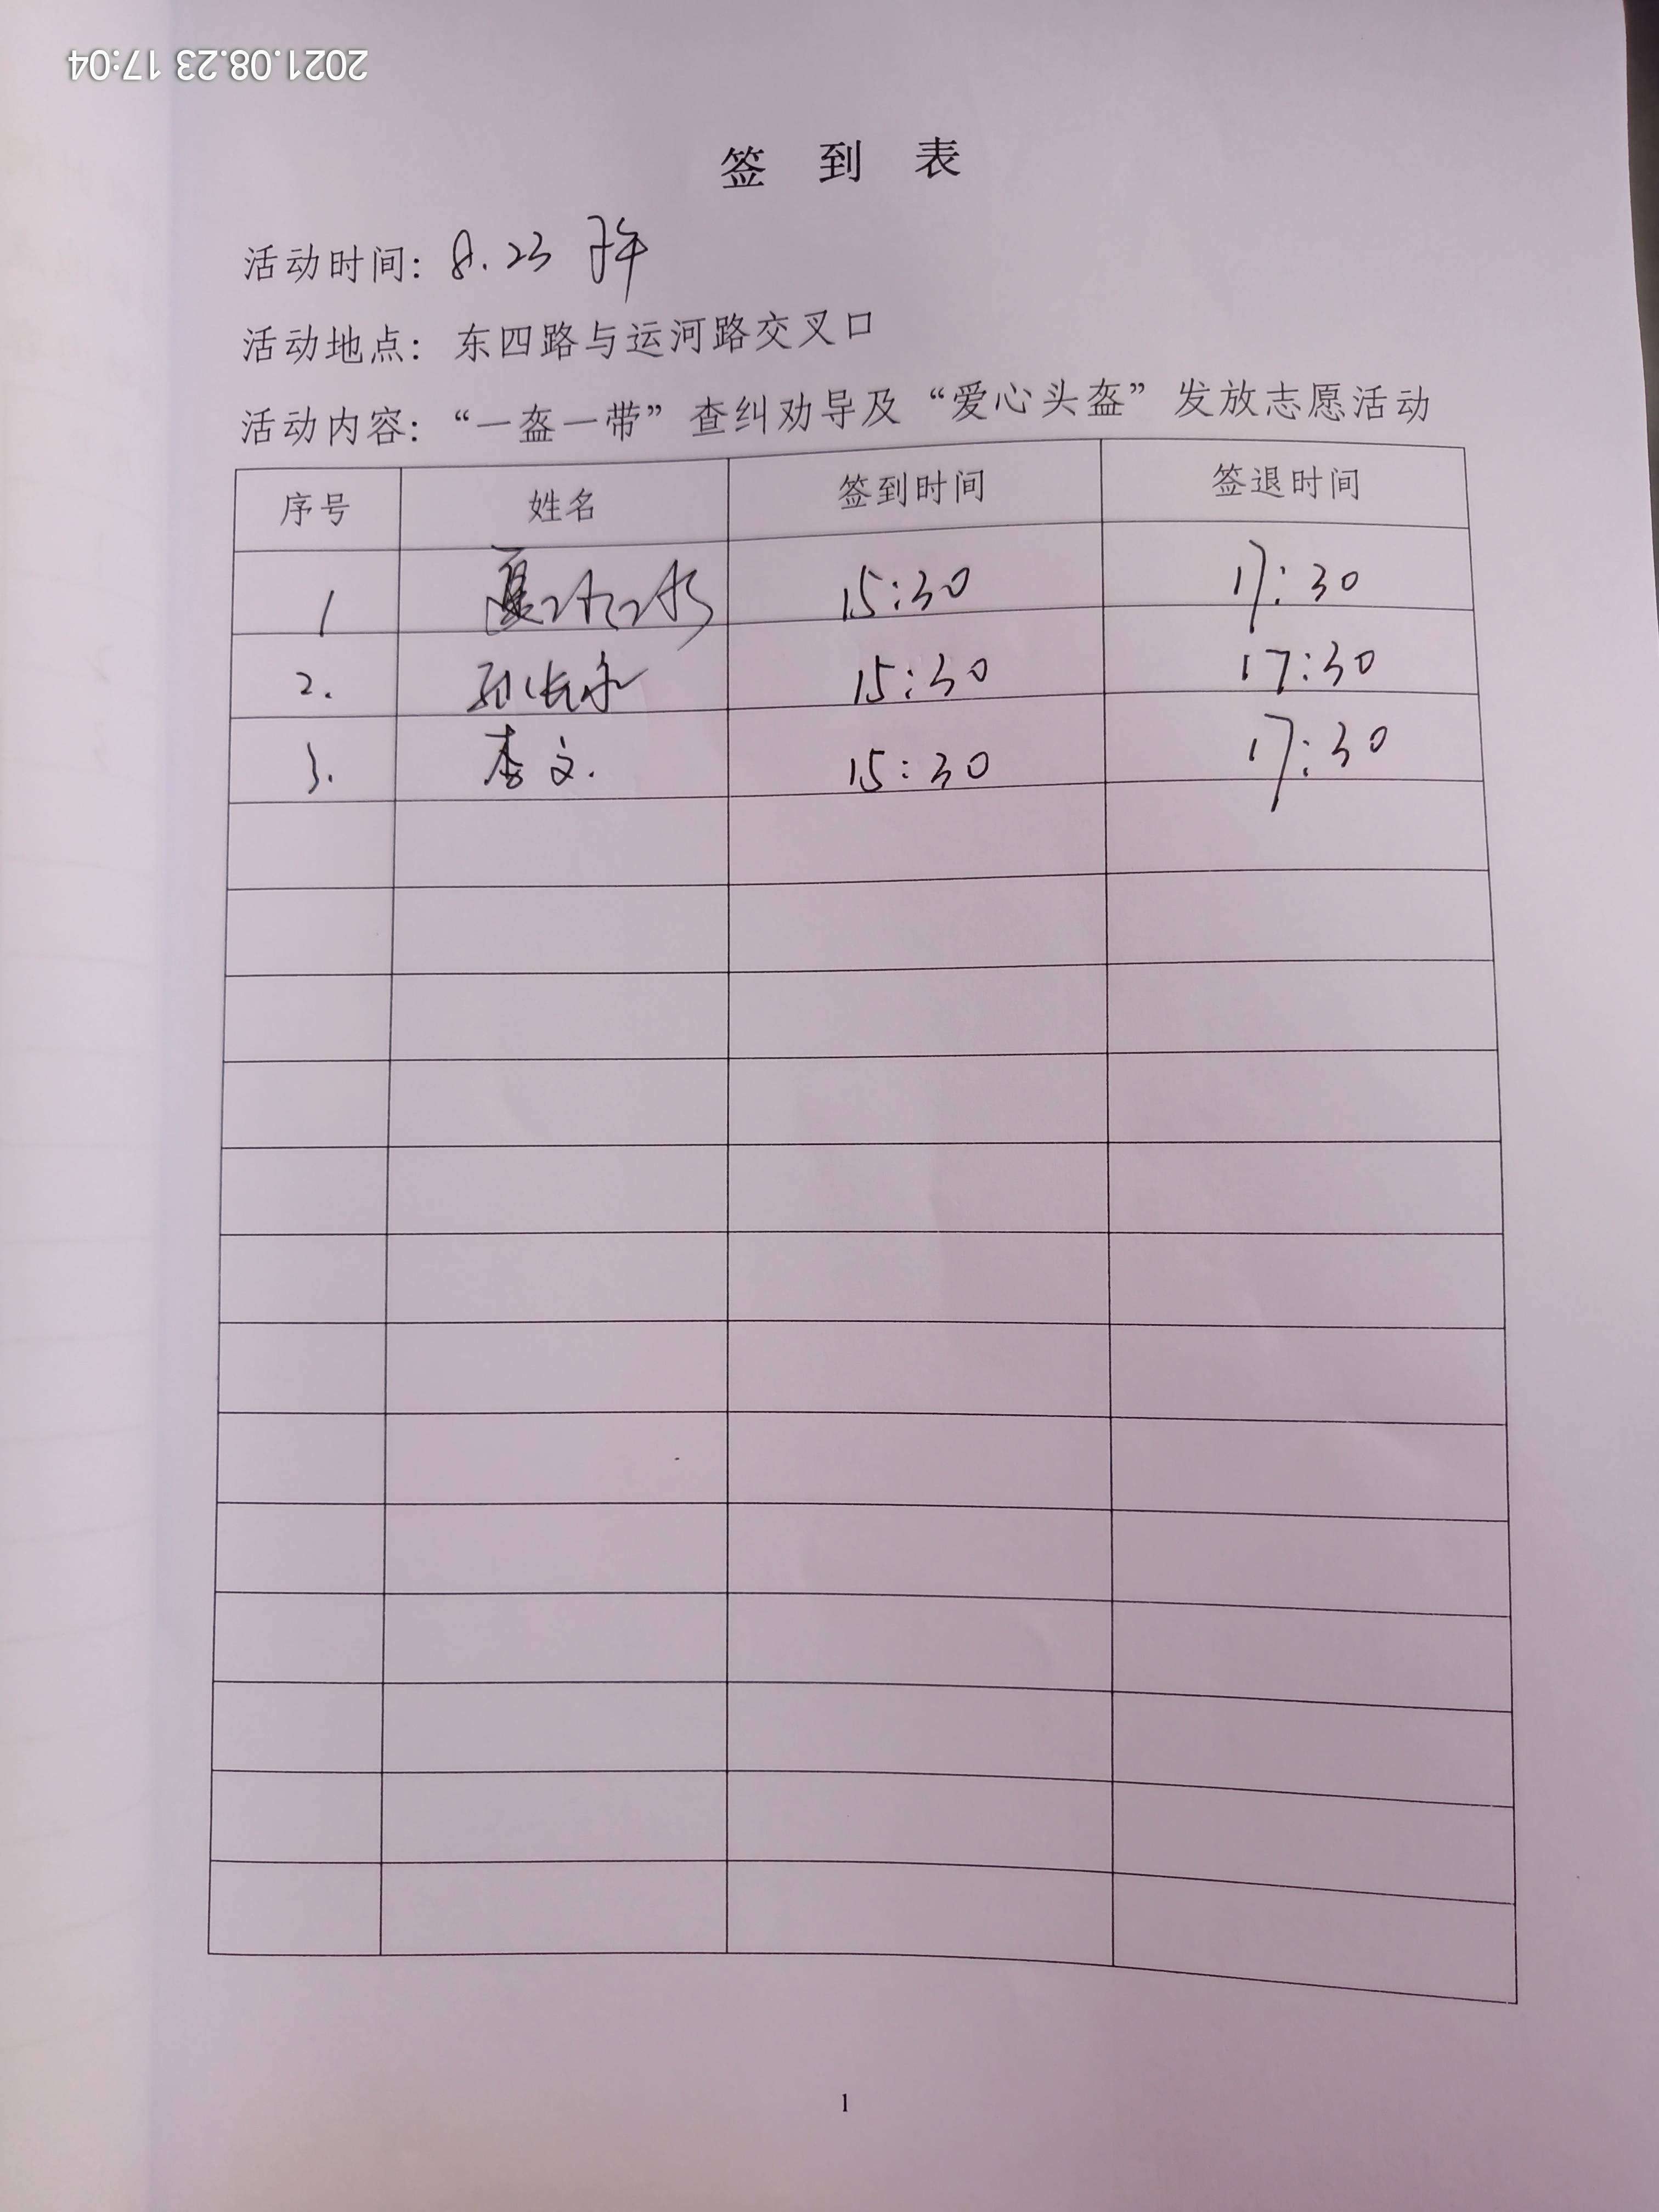 2021.08.23 17:04
签 到 表
活动时间：8.23 下午
活动地点：东四路与运河路交叉口
活动内容：“一盔一带”查纠劝导及“爱心头盔”发放志愿活动
序号 姓名 签到时间 签退时间
1 夏 15:30 17:30
2. 孙 15:30 17:30
3. 李文. 15:30 17:30
1